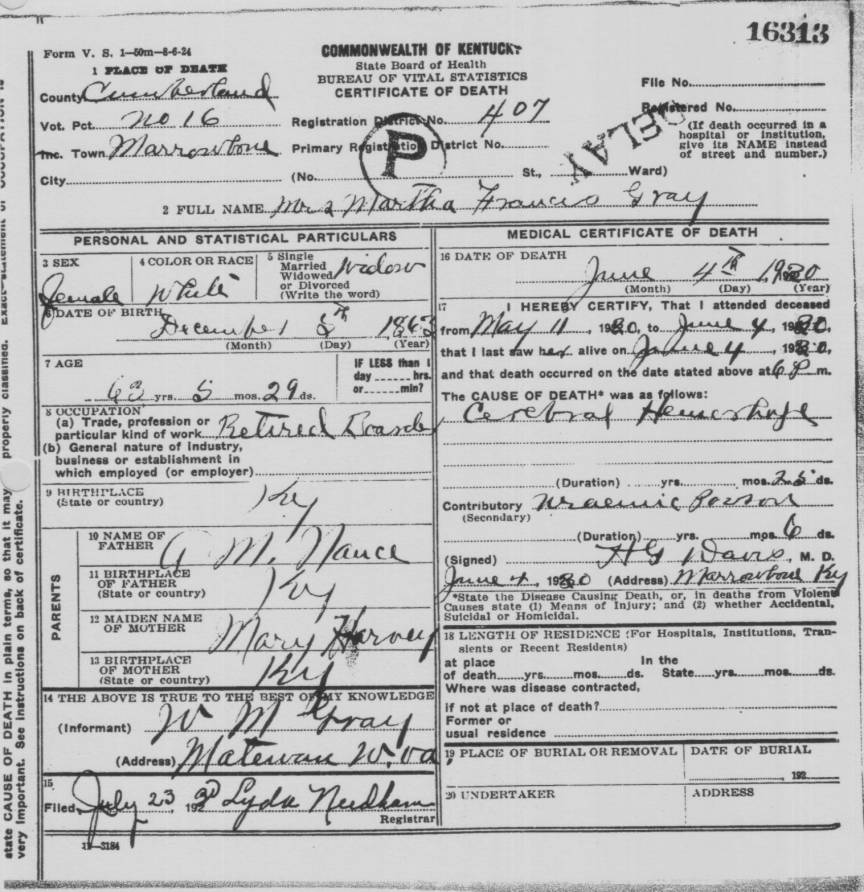 16313
Form V. S. 1—50m—8-6-24
COMMONWEALTH OF KENTUCKY
State Board of Health
BUREAU OF VITAL STATISTICS
CERTIFICATE OF DEATH
1 PLACE OF DEATH
County Cumberland
File No.
Vot. Pct. No 16
Registration District No. 407
Registered No.
DELAY
(If death occurred in a hospital or institution, give its NAME instead of street and number.)
Inc. Town Marrowbone
Primary Registration District No.
P
City
(No. St., Ward)
2 FULL NAME Mrs Martha Francis Gray
PERSONAL AND STATISTICAL PARTICULARS
3 SEX
female
4 COLOR OR RACE
White
5 Single
Married
Widowed
or Divorced
(Write the word)
Widow
6 DATE OF BIRTH
December 5th
(Month) (Day) (Year)
7 AGE
63 yrs. 5 mos. 29 ds.
IF LESS than 1
day hrs.
or min?
8 OCCUPATION
(a) Trade, profession or
particular kind of work Retired
(b) General nature of industry,
business or establishment in
which employed (or employer)
9 BIRTHPLACE
(State or country) Ky
PARENTS
10 NAME OF
FATHER M. Nance
11 BIRTHPLACE
OF FATHER
(State or country) Ky
12 MAIDEN NAME
OF MOTHER Mary Harvey
13 BIRTHPLACE
OF MOTHER
(State or country) Ky
14 THE ABOVE IS TRUE TO THE BEST OF MY KNOWLEDGE
(Informant) W M Gray
(Address) Matewan W. Va
15
Filed July 23 192 30 Lyda Needham
Registrar
11—3184
MEDICAL CERTIFICATE OF DEATH
16 DATE OF DEATH
June 4th, 1930
(Month) (Day) (Year)
17 I HEREBY CERTIFY, That I attended deceased
from May 11, 1930, to June 4, 1930,
that I last saw her alive on June 4, 1930,
and that death occurred on the date stated above at 6 P m.
The CAUSE OF DEATH* was as follows:
Cerebral Hemorhage
(Duration) yrs. mos. 25 ds.
Contributory Uraemic Poison
(Secondary)
(Duration) yrs. mos. 6 ds.
(Signed) H G Davis, M. D.
June 4, 1930 (Address) Marrowbone Ky
*State the Disease Causing Death, or, in deaths from Violent
Causes state (1) Means of Injury; and (2) whether Accidental,
Suicidal or Homicidal.
18 LENGTH OF RESIDENCE (For Hospitals, Institutions, Transients or Recent Residents)
at place In the
of death yrs. mos. ds. State yrs. mos. ds.
Where was disease contracted,
if not at place of death?
Former or
usual residence
19 PLACE OF BURIAL OR REMOVAL
DATE OF BURIAL
, 192
20 UNDERTAKER
ADDRESS
state CAUSE OF DEATH in plain terms, so that it may properly classified. Exact statement of OCCUPATION is
very important. See instructions on back of certificate.